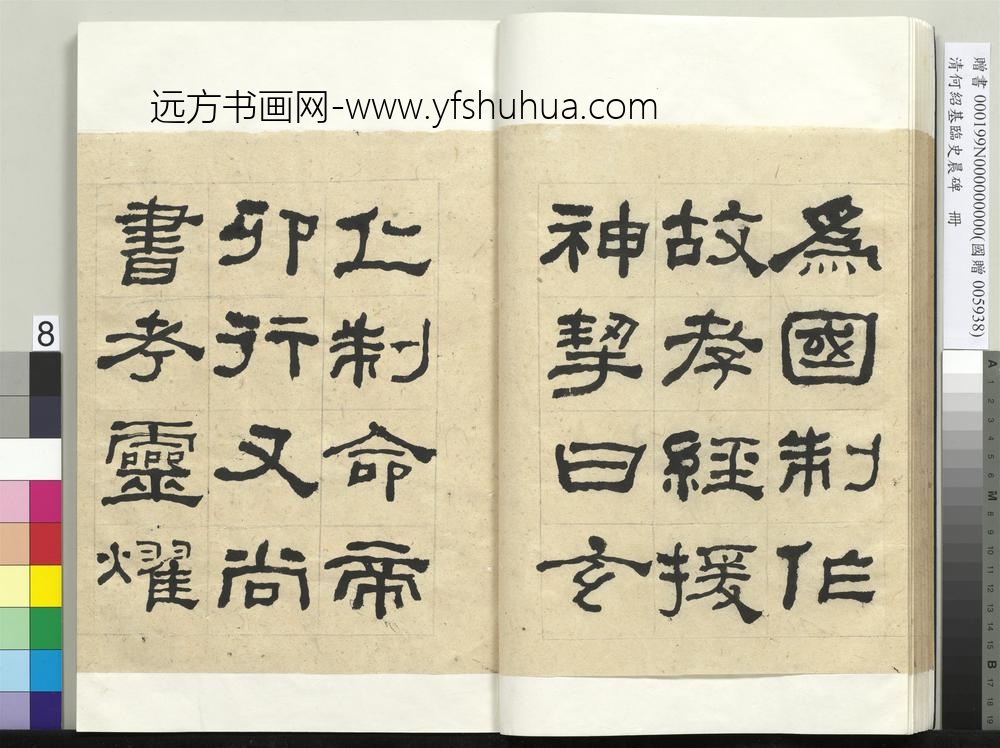 远方书画网-www.yfshuhua.com
贈書 000199N000000000(國贈 005938)
清何紹基臨史晨碑 冊
爲國制作
故孝經援
神挈曰玄
丘制命帝
卯行又尚
書考靈燿
8
A 1 2 3 4 5 6 M 8 9 10 11 12 13 14 15 B 17 18 19